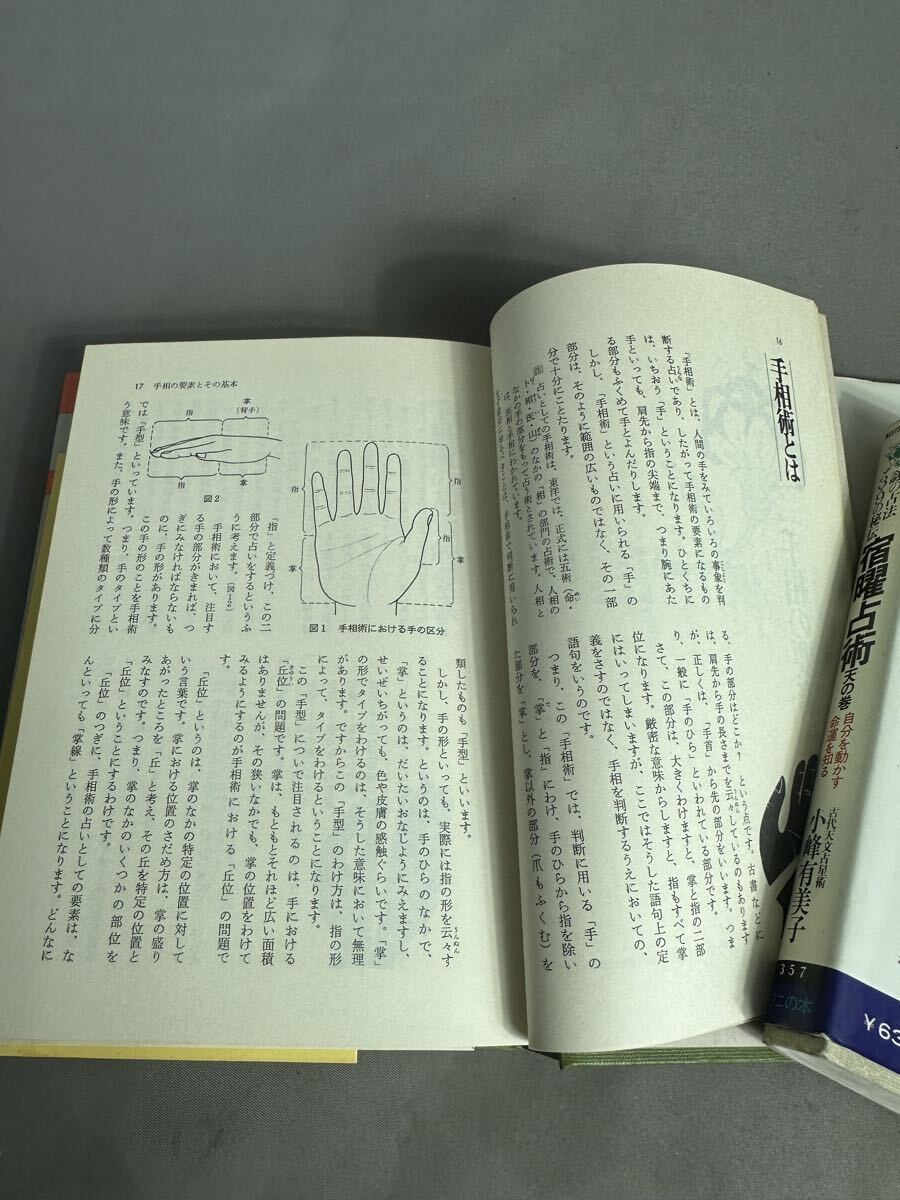 16
手相術とは
「手相術」とは、人間の手をみていろいろの事象を判
断する占いであり、したがって手相術の要素になるもの
は、いちおう「手」ということになります。ひとくちに
手といっても、肩先から指の尖端まで、つまり腕にあた
る部分もふくめて手とよんだりします。
しかし、「手相術」という占いに用いられる「手」の
部分は、そのように範囲の広いものではなく、その一部
分で十分にことたります。
占いとしての手相術は、東洋では、正式には五術（命・
卜・相・医・山）のなかの「相」の部門の占術で、人相の
なかの手の部分をもって占う術とされています。人相と
は、面相と手相にわかれています。
る。手の部分はどこか？という点です。古書などに
は、肩先から手の長さまでを云々しているのもあります
が、正しくは、「手首」から先の部分をいいます。つま
り、一般に「手のひら」といわれている部分です。
さて、この部分は、大きくわけますと、掌と指の二部
位になります。厳密な意味からしますと、指もすべて掌
にはいってしまいますが、ここではそうした語句上の定
義をさすのではなく、手相を判断するうえにおいての、
語句をいうのです。
つまり、この「手相術」では、判断に用いる「手」の
部分を、「掌」と「指」にわけ、手のひらから指を除い
た部分を「掌」とし、掌以外の部分（爪もふくむ）を
17 手相の要素とその基本
指
掌
指
掌
図1 手相術における手の区分
指
掌
（背手）
指
掌
図2
「指」と定義づけ、この二
部分で占いをするというふ
うに考えます。（図1・2）
手相術において、注目す
る手の部分がきまれば、つ
ぎにみなければならないも
のに、手の形があります。
この手の形のことを手相術
では「手型」といっています。つまり、手のタイプとい
う意味です。また、手の形によって数種類のタイプに分
類したものも「手型」といいます。
しかし、手の形といっても、実際には指の形を云々す
ることになります。というのは、手のひらのなかで、
「掌」というのは、だいたいおなじようにみえますし、
せいぜいちがっても、色や皮膚の感触ぐらいです。「掌」
の形でタイプをわけるのは、そうした意味において無理
があります。ですからこの「手型」のわけ方は、指の形
によって、タイプをわけるということになります。
この「手型」についで注目されるのは、手における
「丘位」の問題です。掌は、もともとそれほど広い面積
はありませんが、その狭いなかでも、掌の位置をわけて
みるようにするのが手相術における「丘位」の問題で
す。
「丘位」というのは、掌のなかの特定の位置に対して
いう言葉です。掌における位置のさだめ方は、掌の盛り
あがったところを「丘」と考え、その丘を特定の位置と
みなすのです。つまり、掌のなかのいくつかの部位を
「丘位」ということにするわけです。
「丘位」のつぎに、手相術の占いとしての要素は、な
んといっても「掌線」ということになります。どんなに
宿曜占術
天の巻
自分を動かす
命運を知る
古代天文占星術
小峰有美子
357
ワニの本